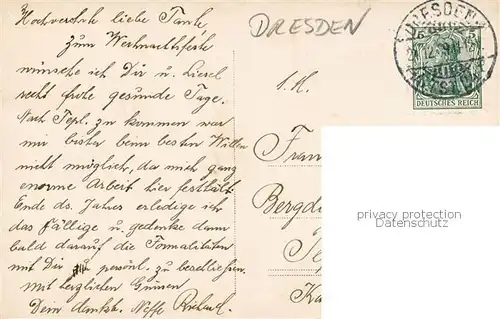 Hochverehrte liebe Tante,
zum Weihnachtsfeste
wünsche ich Dir u. Liesel
recht frohe gesunde Tage.
Nach Tepl. zu kommen war
mir bisher beim besten Willen
nicht möglich, da mich ganz
enorme Arbeit hier festhält.
Ende ds. Jahres erledige ich
das Fällige u. gedenke dann
bald darauf die Formalitäten
mit Dir persönl. zu beschließen.
Mit herzlichen Grüssen
Dein dankb. Neffe Richard.
DRESDEN
DRESDEN
DEUTSCHES REICH
Bergdi
privacy protection
www.ansichtskartenversand.com